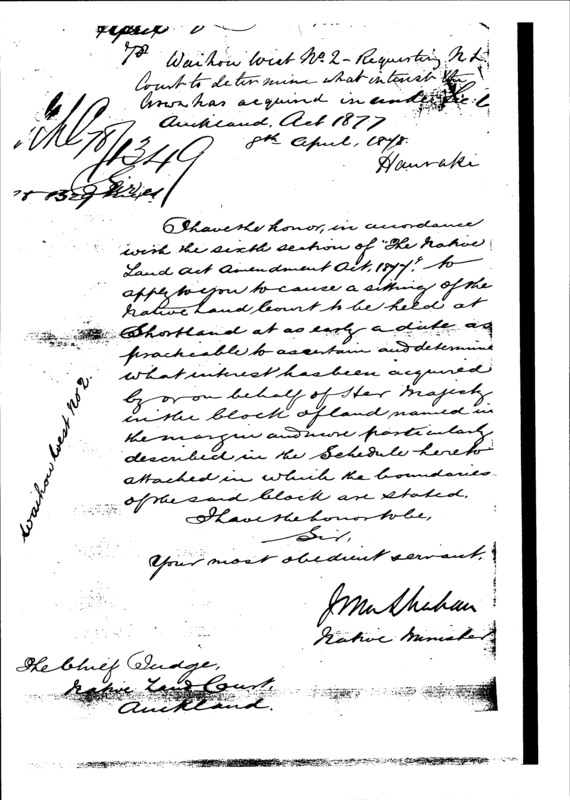 Waihou West No. 2 - Requesting N L
Court to determine what interest the
Crown has acquired in under Sec 6
Auckland, Act 1877
8th April, 1878.
Hauraki
78/1349
Sir,
I have the honor, in accordance
with the sixth section of "The Native
Land Act Amendment Act, 1877", to
apply to you to cause a sitting of the
Native Land Court to be held at
Shortland at as early a date as
practicable to ascertain and determine
what interest has been acquired
by or on behalf of Her Majesty
in the block of land named in
the margin and more particularly
described in the Schedule hereto
attached in which the boundaries
of the said block are stated.
Waihou West No 2.
I have the honor to be,
Sir,
Your most obedient servant.
Native Minister
The Chief Judge,
Native Land Court,
Auckland.